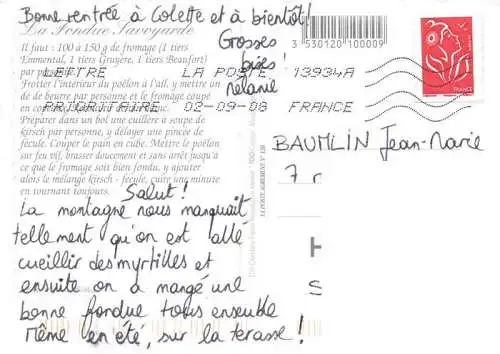 Bonne rentrée à Colette et à bientôt!
Grosses
bises!
Mélanie
La Fondue Savoyarde
Il faut : 100 à 150 g de fromage (1 tiers
Emmental, 1 tiers Gruyère, 1 tiers Beaufort)
par
Frotter l'intérieur du poêlon à l'ail. y mettre un
de de beurre par personne et le fromage coupé
en
Préparer dans un bol une cuillerée à soupe de
kirsch par personne, y délayer une pincée de
fécule. Couper le pain en cube. Mettre le poêlon
sur feu vif, brasser doucement et sans arrêt jusqu'à
ce que le fromage soit bien fondu, y ajouter
alors le mélange kirsch - fécule, cuire une minute
en tournant toujours.
3530120100009
LETTRE LA POSTE 13934A
PRIORITAIRE 02-09-08 FRANCE
BAUMLIN Jean-Marie
7
Salut!
La montagne nous manquait
tellement qu'on est allé
cueillir des myrtilles et
ensuite on a mangé une
bonne fondue tous ensemble
même en été, sur la terasse!
H
S